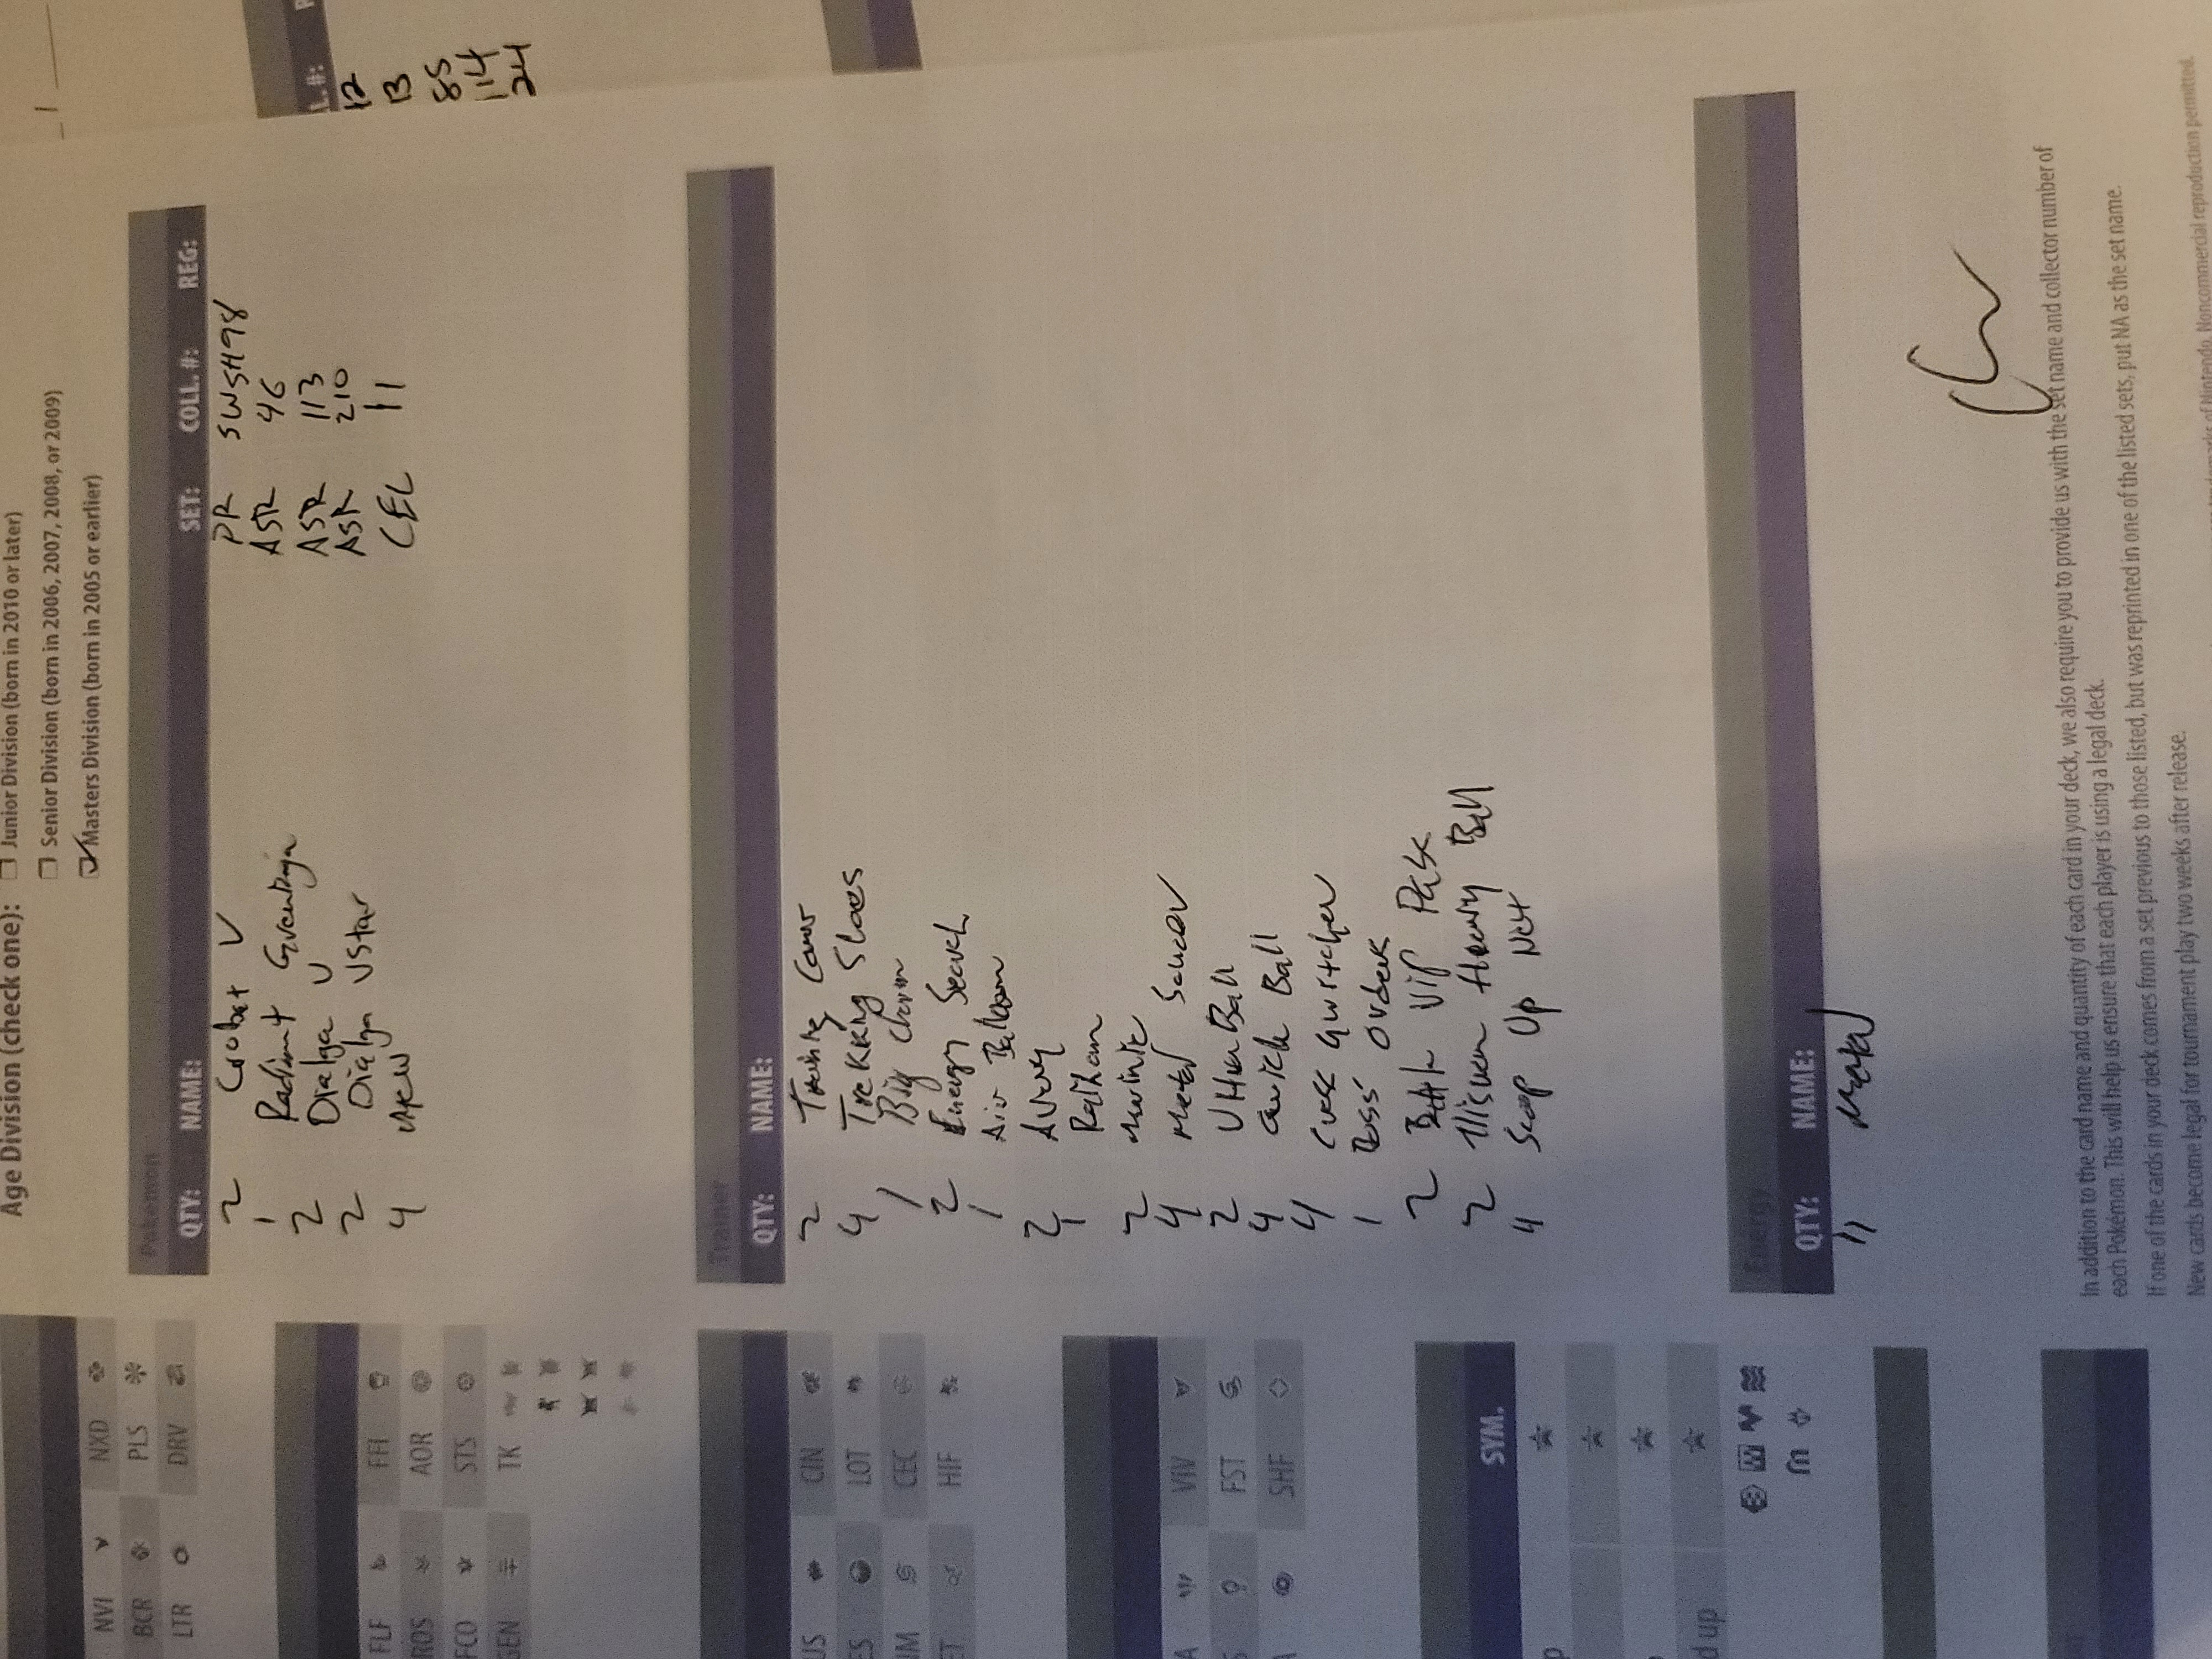 Age Division (check one):
Junior Division (born in 2010 or later)
Senior Division (born in 2006, 2007, 2008, or 2009)
Masters Division (born in 2005 or earlier)
NVI NXD
BCR PLS
LTR DRV
Pokémon
QTY: NAME: SET: COLL. #: REG:
2 Crobat V PR SWSH98
1 Radiant Greninja ASR 46
2 Dialga V ASR 113
2 Dialga VStar ASR 210
4 Mew CEL 11
L. #:
12
13
85
114
24
FLF FFI
ROS AOR
FCO STS
GEN TK
Trainer
QTY: NAME:
2 Training Court
4 Trekking Shoes
1 Big Charm
2 Energy Search
1 Air Balloon
2 Avery
1 Raihan
2 Marnie
4 Metal Saucer
2 Ultra Ball
4 Quick Ball
4 Cross Switcher
1 Boss' Orders
2 VIP Pass
2 Hisuian Heavy Ball
4 Scoop Up Net
US CIN
ES LOT
UM CEC
ET HIF
A VIV
S FST
A SHF
SYM.
p
d up
Energy
QTY: NAME:
11 Metal
In addition to the card name and quantity of each card in your deck, we also require you to provide us with the set name and collector number of
each Pokémon. This will help us ensure that each player is using a legal deck.
If one of the cards in your deck comes from a set previous to those listed, but was reprinted in one of the listed sets, put NA as the set name.
New cards become legal for tournament play two weeks after release.
of Nintendo. Noncommercial reproduction permitted.